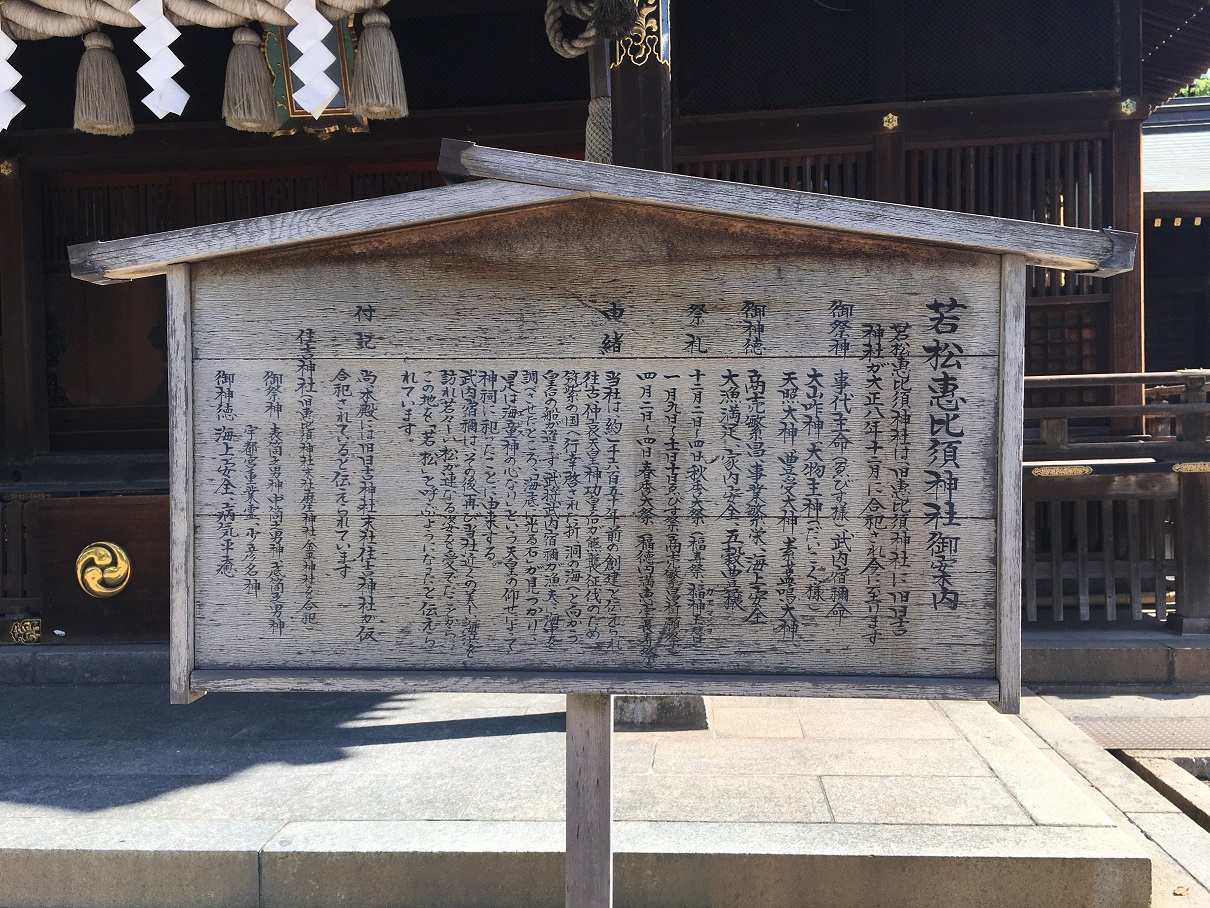 若松恵比須神社御案内
若松恵比須神社は、旧恵比須神社に旧日吉
神社が大正八年十二月に合祀され今に至ります
御祭神 事代主命(ゑびす様) 武内宿禰命
大山咋神 大物主神(だいこく様)
天照大神 豊受大神 素盞嗚大神
御神徳 商売繁昌、事業繁栄、海上安全
大漁満足、家内安全、五穀豊穣
祭礼 十二月二日〜四日 秋季大祭
一月九日〜十一日 十日ゑびす祭
四月二日〜四日 春季大祭
由緒 当社は、約一千六百五十年前の創建と伝えられ
往古 仲哀天皇 神功皇后が熊襲征伐のため
筑紫の国へ行幸啓された折、洞の海へと向かう
皇后の船が進まず、武将武内宿禰が漁夫に海底を
調べさせたところ、海底に出る石が見つかり
是は海童神の心なりという天皇の仰せによって
神祠に祀ったことに由来する。
武内宿禰は、その後再び当社近くの海浜を
訪れ若々しい松が連なる姿を愛でたことから、
この地を「若松」と呼ぶようになったと伝えら
れています。
付記 尚、本殿には旧日吉神社、末社住吉神社が仮
合祀されていると伝えられています
住吉神社(旧恵比須神社末社麻生神社、金毘神社を合祀)
御祭神 表筒男神 中筒男神 底筒男神
宇都宮重業之霊、少彦名神
御神徳 海上安全、病気平癒